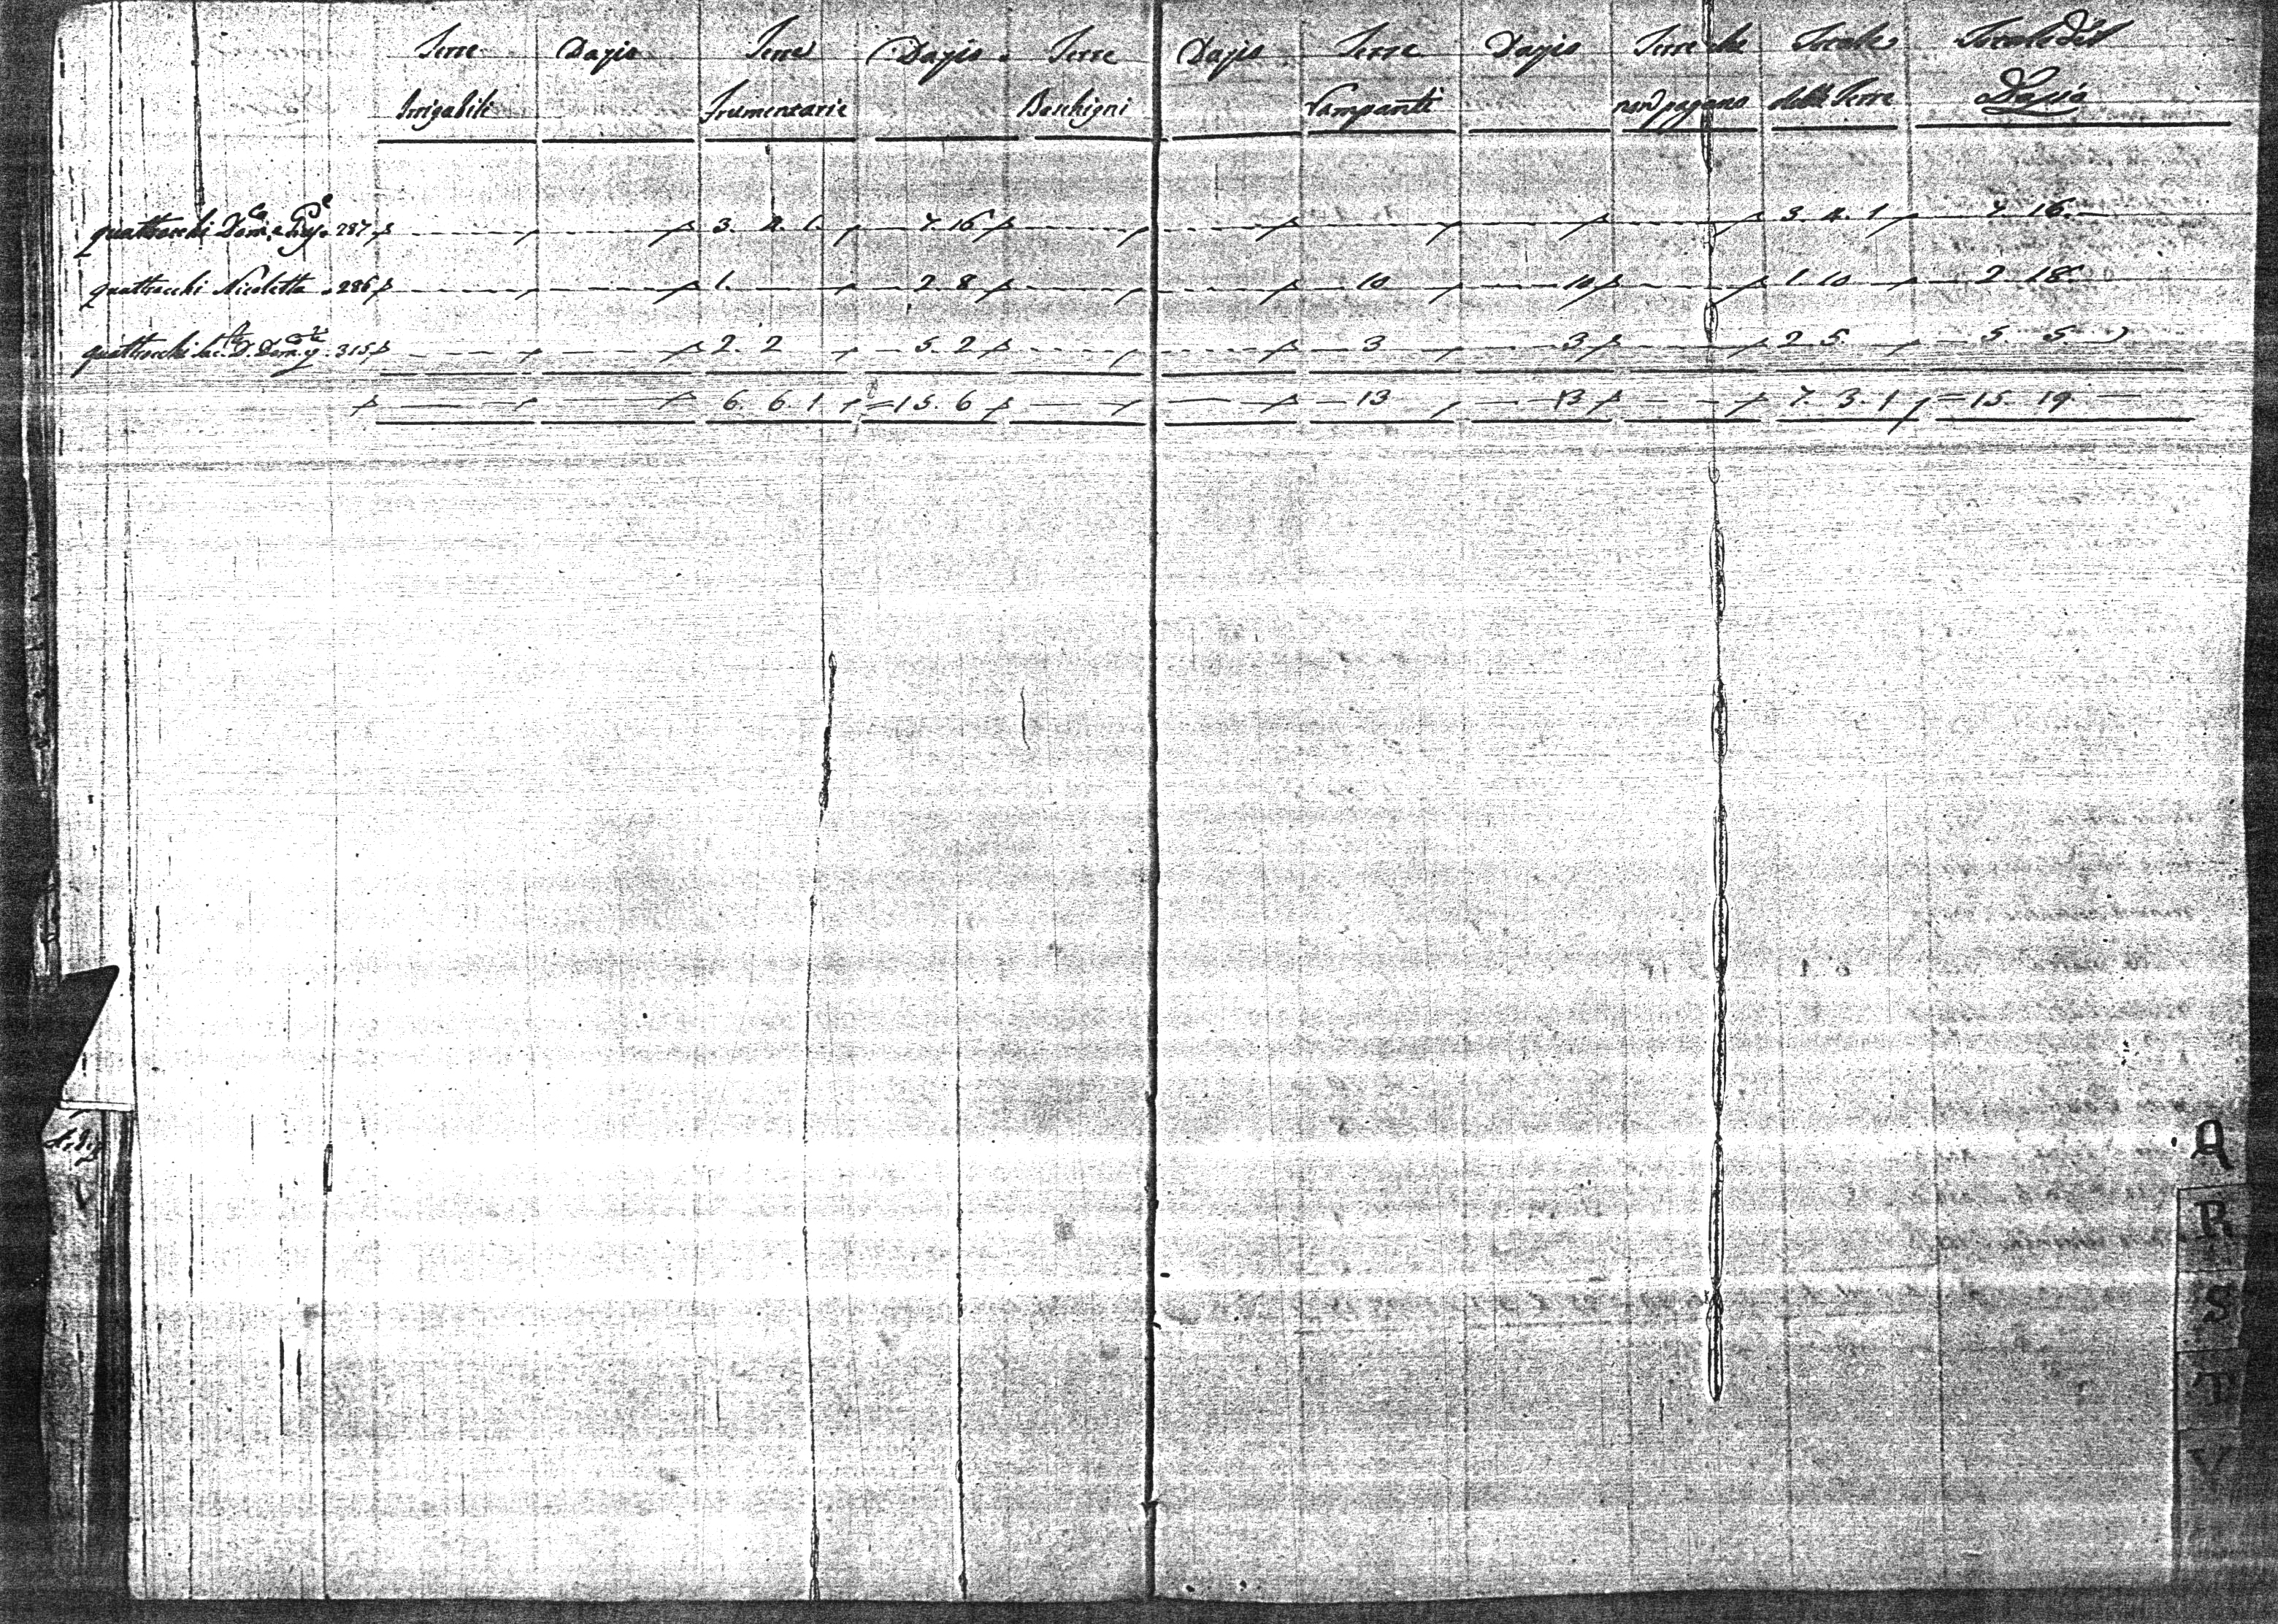 Terre Dazio Terre Dazio Terre Dazio Terre Dazio Terre che Totale Totale del
Irrigabili Frumentarie Boschigni Vampanti non pagano delle Terre Dazio
quattrocchi Dom.ca e Gius.e 287 3. 4. 1. 7. 16 3. 4. 1 7. 16.
quattrocchi Nicoletta 286 1. 2. 8 10 10 1. 10 2. 18.
quattrocchi D. Dom. 315 2. 2 5. 2 3 3 2. 5. 5. 5
6. 6. 1 15. 6 13 13 7. 3. 1 15. 19
Q
R
S
T
V